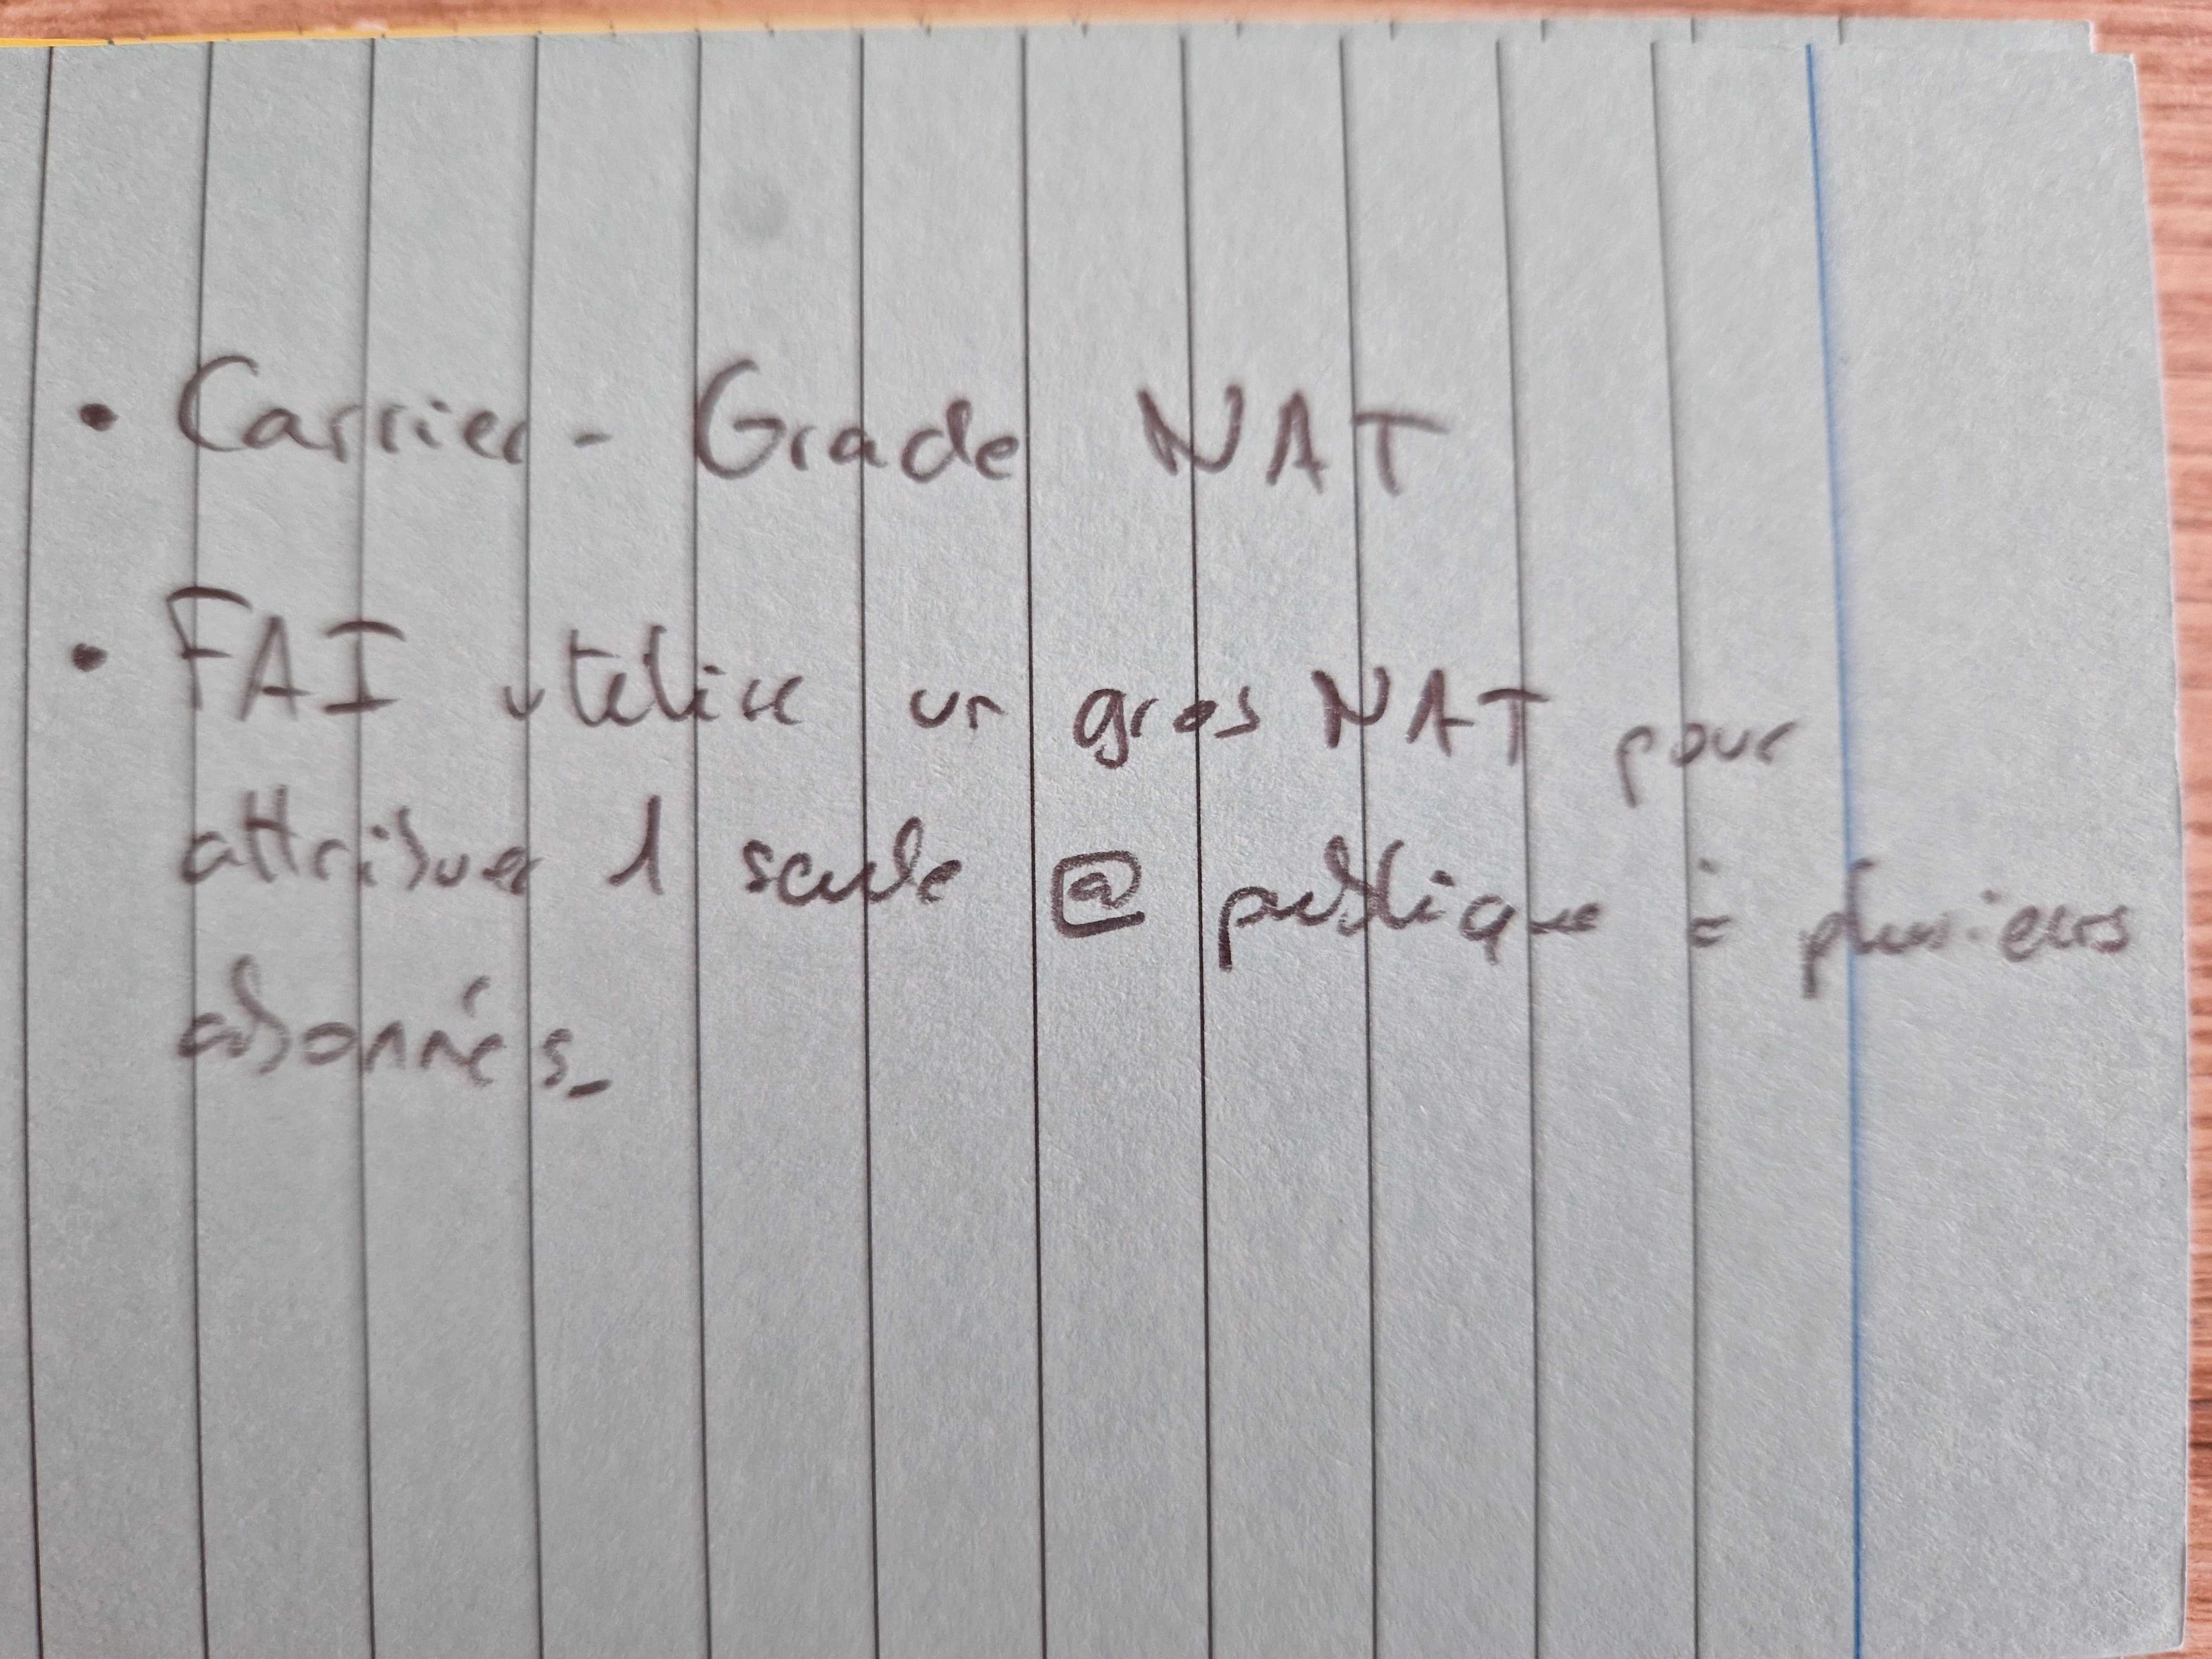 • Carrier-Grade NAT
• FAI utilise un gros NAT pour
attribuer 1 seule @ publique à plusieurs
abonnés.